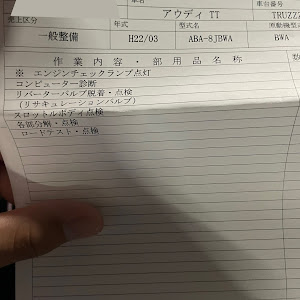 車名
車台番号
アウディ TT
TRUZZZ
売上区分
年式
型式名
原動機型式
一般整備
H22/03
ABA-8JBWA
BWA
作業内容・部用品名称
数
※ エンジンチェックランプ点灯
コンピューター診断
リバーターバルブ脱着・点検
(リサキュレーションバルブ)
スロットルボディ点検
各部分離・点検
ロードテスト・点検